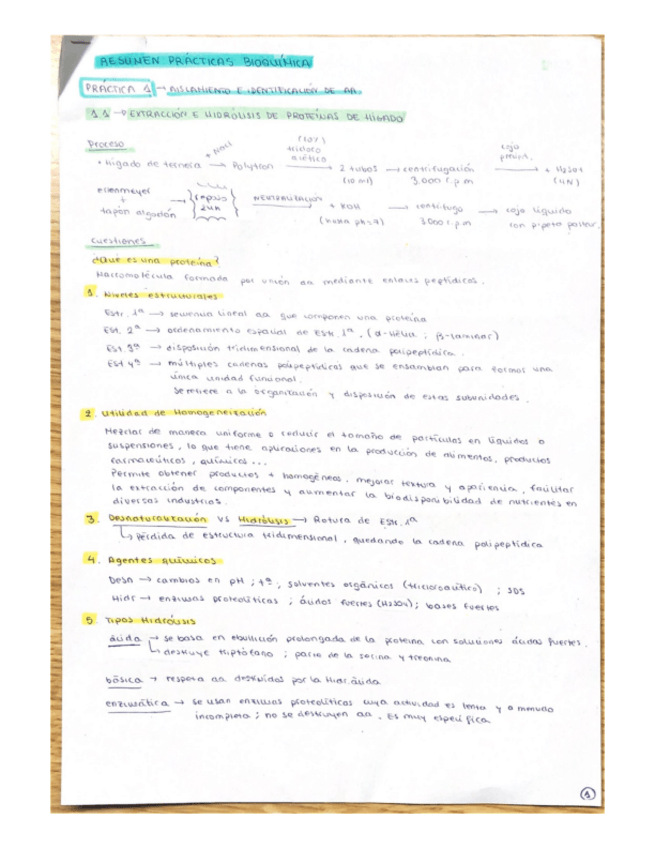 RESUMEN PRÁCTICAS BIOQUÍMICA
PRÁCTICA 1 → AISLAMIENTO E IDENTIFICACIÓN DE AA.
1.1 → EXTRACCIÓN E HIDRÓLISIS DE PROTEÍNAS DE HÍGADO
Proceso
+ NaCl
(10%) tricloro acético
cojo precipit.
• Hígado de ternera → Polytron → 2 tubos (10 ml) → centrifugación 3.000 r.p.m → + H2SO4 (4N)
erlenmeyer + tapón algodón → { reposo 24h } NEUTRALIZACIÓN → + KOH (hasta pH=7) → centrífugo 3000 r.p.m → cojo líquido con pipeta pasteur.
Cuestiones
¿Qué es una proteína?
Macromolécula formada por unión aa mediante enlaces peptídicos.
1. Niveles estructurales
Estr. 1ª → secuencia lineal aa que componen una proteína
Est. 2ª → ordenamiento espacial de Estr. 1ª, (α-hélice ; β-laminar)
Est. 3ª → disposición tridimensional de la cadena polipeptídica.
Est 4ª → múltiples cadenas polipeptídicas que se ensamblan para formar una
única unidad funcional.
Se refiere a la organización y disposición de estas subunidades.
2. Utilidad de Homogeneización
Mezclar de manera uniforme o reducir el tamaño de partículas en líquidos o
suspensiones, lo que tiene aplicaciones en la producción de alimentos, productos
farmacéuticos, químicos...
Permite obtener productos + homogéneos, mejorar textura y apariencia, facilitar
la extracción de componentes y aumentar la biodisponibilidad de nutrientes en
diversas industrias.
3. Desnaturalización VS Hidrólisis → Rotura de Estr. 1ª
↳ Pérdida de estructura tridimensional, quedando la cadena polipeptídica
4. Agentes químicos
Desn → cambios en pH ; tª ; solventes orgánicos (tricloroacético) ; SDS
Hidr → enzimas proteolíticas ; ácidos fuertes (H2SO4) ; bases fuertes
5. Tipos Hidrólisis
ácida → se basa en ebullición prolongada de la proteína con soluciones ácidas fuertes.
↳ destruye triptófano ; parte de la serina y treonina
básica → respeta aa destruidos por la hidr. ácida
enzimática → se usan enzimas proteolíticas cuya actividad es lenta y a menudo
incompleta ; no se destruyen aa. Es muy específica.
1